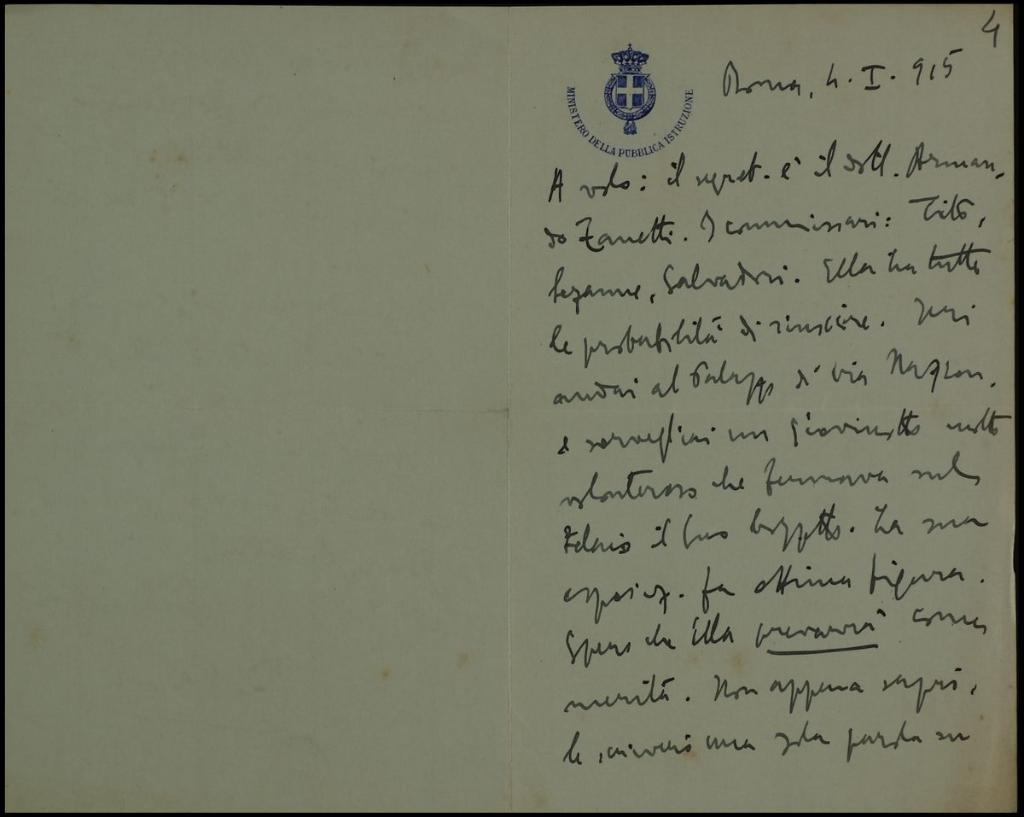 4
MINISTERO DELLA PUBBLICA ISTRUZIONE
Roma, 4. I. 915
A volo: il segret. è il dott. Arman-
do Zanetti. I commissari: Tito,
Cezanne, Salvadori. Ella ha tutte
le probabilità di riuscire. Ieri
andai al Palazzo di via Nazion.
e sorvegliai un giovinotto molto
volonteroso che fermava sul
telaio il suo bozzetto. La sua
esposiz. fa ottima figura.
Spero che Ella prevarrà come
merita. Non appena saprò,
le scriverò una sola parola su